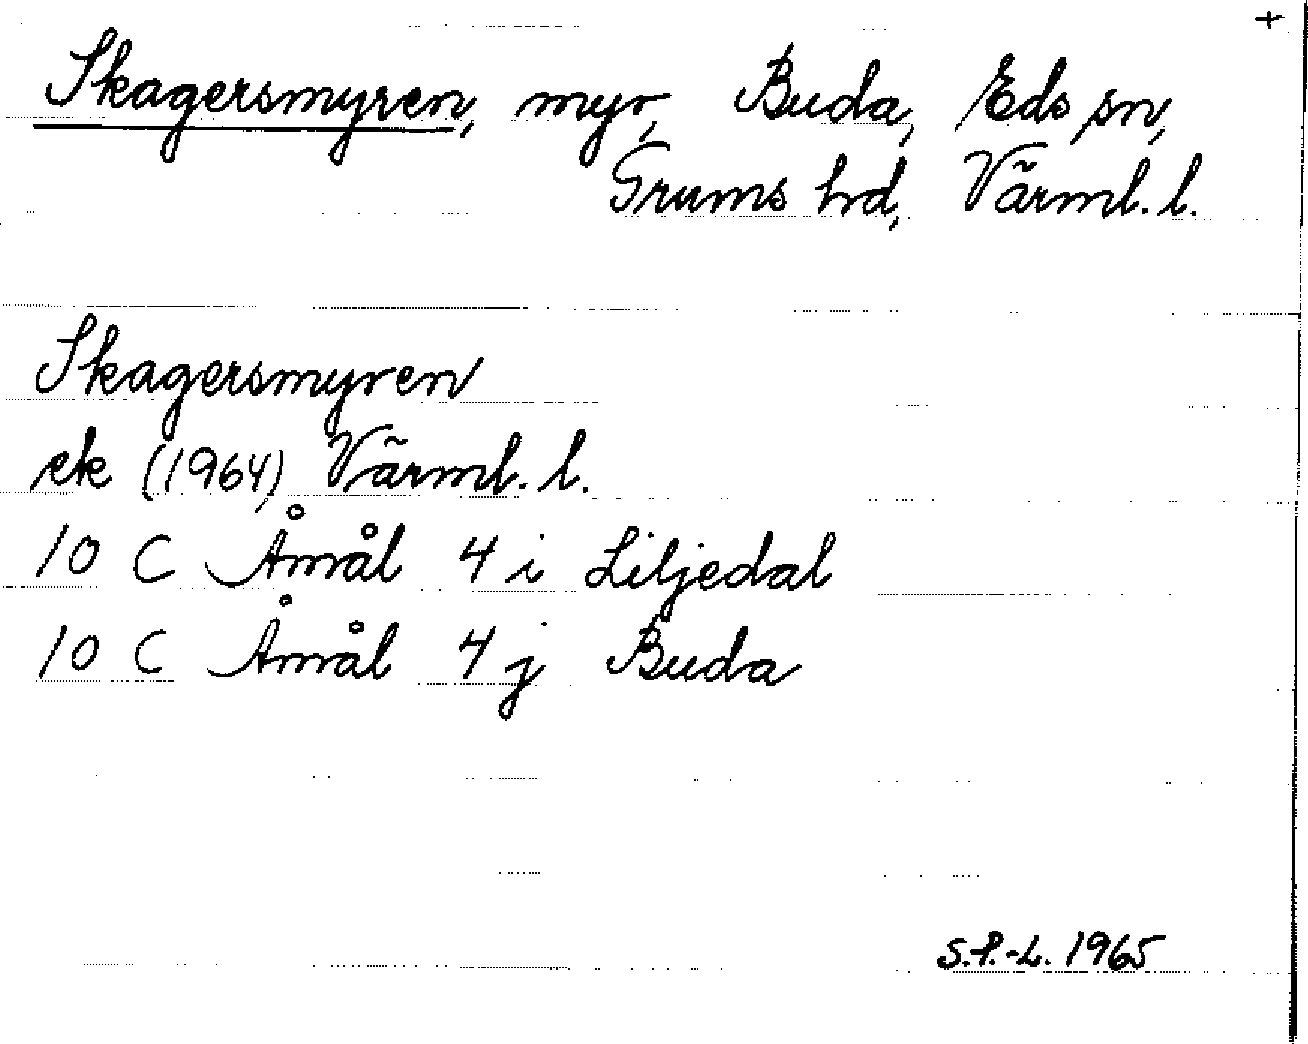 +
Skagersmyren, myr, Buda, Eds sn,
Grums hd, Värml. l.
Skagersmyren
ek (1964) Värml. l.
10 C Åmål 4 i Liljedal
10 C Åmål 4 j Buda
S.P.-L. 1965